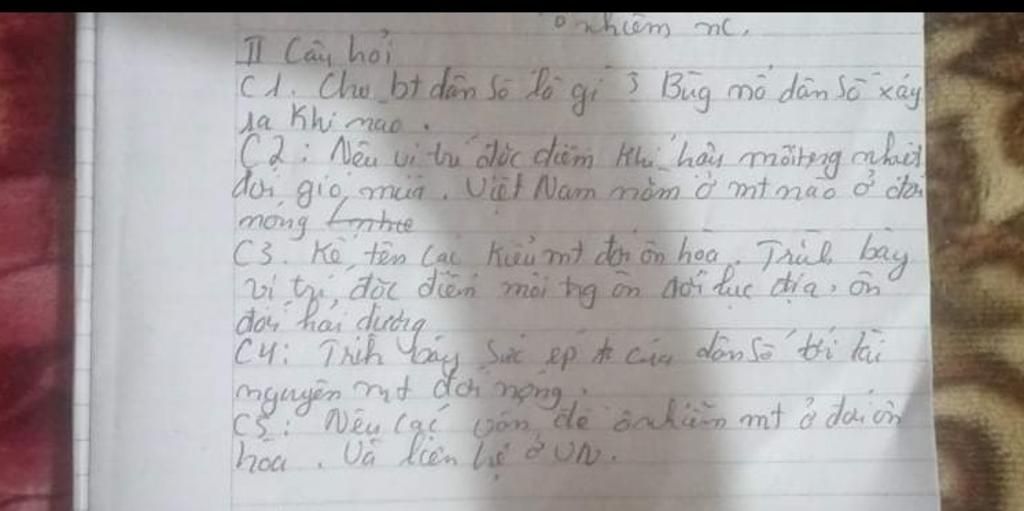 ô nhiễm nc.
II Câu hỏi
C1. Cho bt dân số là gì ? Bùg nổ dân số xảy
ra khi nào.
C2: Nêu vị trí đặc điểm khí hậu môi trg nhiệt
đới gió mùa. Việt Nam nằm ở mt nào ở đới
nóng
C3. Kể tên các kiểu mt đới ôn hòa. Trình bày
vị trí, đặc điểm môi trg ôn đới lục địa, ôn
đới hải dương
C4: Trình bày sức ép của dân số tới tài
nguyên mt đới nóng.
C5: Nêu các vấn đề ô nhiễm mt ở đới ôn
hòa. Và liên hệ ở VN.